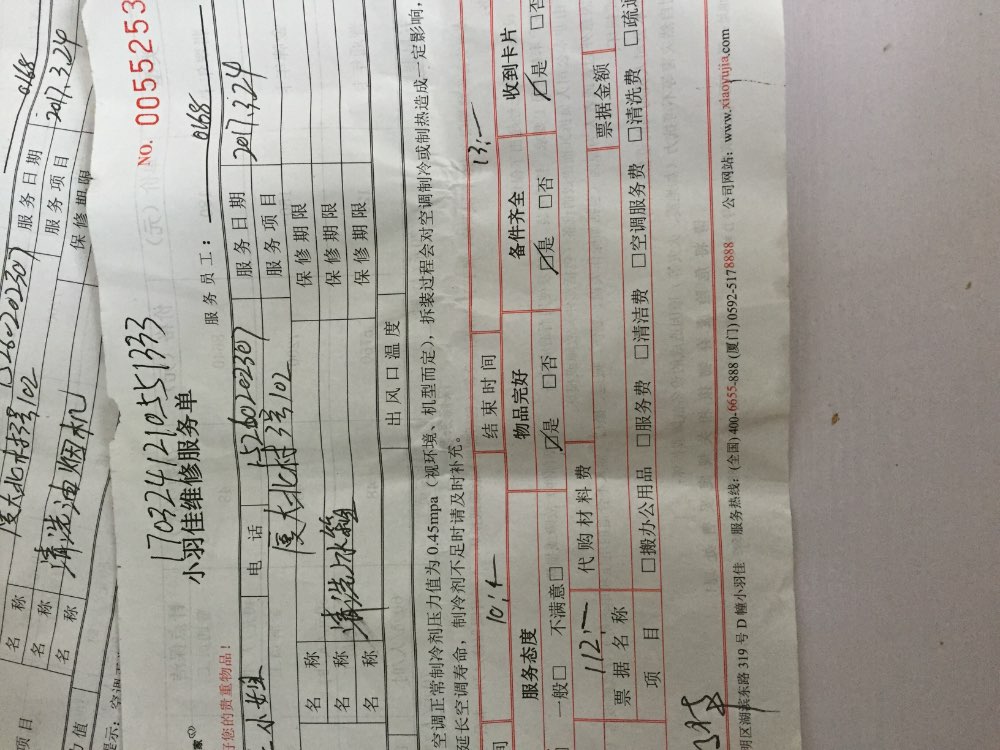 0168
服务日期 2017.3.24
服务项目
保修期限
15260202309
厦大北村3号102
清洗油烟机
名称
名称
名称
项目
NO. 0055253
170324121051333
小羽佳维修服务单
服务员工： 0168
好您的贵重物品！
电话 15260202309 服务日期 2017.3.24
厦大北村3号102 服务项目
名称 保修期限
名称 清洗冰箱 保修期限
名称 保修期限
出风口温度
空调正常制冷剂压力值为0.45mpa（视环境、机型而定），拆装过程会对空调制冷或制热造成一定影响，
延长空调寿命，制冷剂不足时请及时补充。
间 结束时间 13:—
服务态度 物品完好 备件齐全 收到卡片
一般□ 不满意□ ☑是 □否 ☑是 □否 ☑是 □否
112.— 代购材料费
票据名称 票据金额
项目 □搬办公用品 □服务费 □清洁费 □空调服务费 □清洗费 □疏通
明区湖滨东路319号D幢小羽佳 服务热线：(全国) 400-6655-888 (厦门) 0592-5178888 公司网站：www.xiaoyujia.com